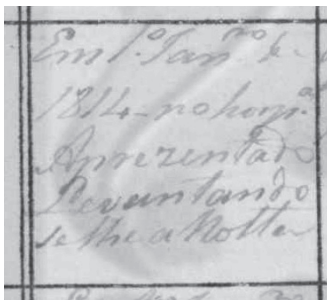 Em 1.º Jan.ro de
1814 - no hosp.al
Aprezentado
Levantando
se lhe a Notta